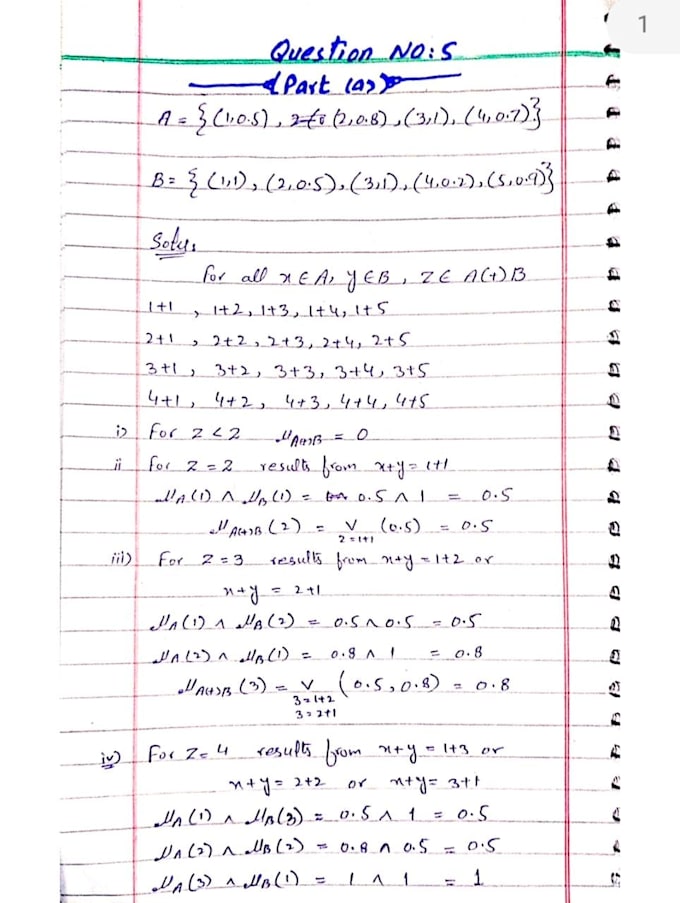 1
Question NO:5
Part (a)
A = {(1,0.5), (2,0.8), (3,1), (4,0.7)}
B = {(1,1), (2,0.5), (3,1), (4,0.2), (5,0.9)}
Soln
For all x ∈ A, y ∈ B, z ∈ A(+)B
1+1, 1+2, 1+3, 1+4, 1+5
2+1, 2+2, 2+3, 2+4, 2+5
3+1, 3+2, 3+3, 3+4, 3+5
4+1, 4+2, 4+3, 4+4, 4+5
i) For z < 2 μA(+)B = 0
ii for z = 2 results from x+y = 1+1
μA(1) ∧ μB(1) = 0.5 ∧ 1 = 0.5
μA(+)B (2) = ∨ (0.5) = 0.5
2=1+1
iii) For z = 3 results from x+y = 1+2 or
x+y = 2+1
μA(1) ∧ μB(2) = 0.5 ∧ 0.5 = 0.5
μA(2) ∧ μB(1) = 0.8 ∧ 1 = 0.8
μA(+)B (3) = ∨ (0.5, 0.8) = 0.8
3=1+2
3=2+1
iv) For z=4 results from x+y = 1+3 or
x+y = 2+2 or x+y = 3+1
μA(1) ∧ μB(3) = 0.5 ∧ 1 = 0.5
μA(2) ∧ μB(2) = 0.8 ∧ 0.5 = 0.5
μA(3) ∧ μB(1) = 1 ∧ 1 = 1